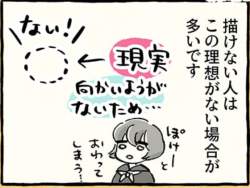 描けない人は
この理想がない場合が
多いです
ない!
現実
向かいようが
ないため…
ぽけーっと
おわって
しまう…